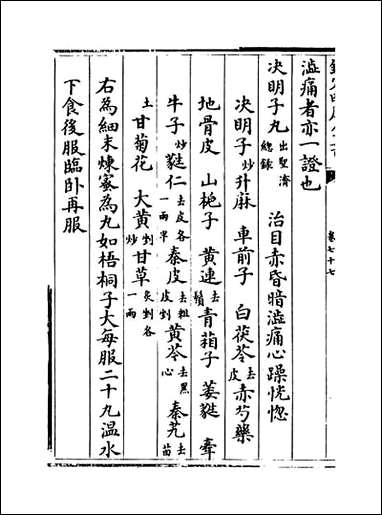 卷七十七
澁痛者亦一證也
决明子丸出聖濟總錄 治目赤昏暗澁痛心躁恍惚
决明子炒升麻 車前子 白茯苓去皮赤芍藥
地骨皮 山梔子 黄連去鬚青葙子 萎蕤 牽
牛子炒蕤仁去皮各一兩半秦皮去粗皮剉黄芩去黑心秦艽去苗
土甘菊花 大黄剉炒甘草炙剉各一兩
右為細末煉蜜為丸如梧桐子大每服二十丸温水
下食後服臨卧再服